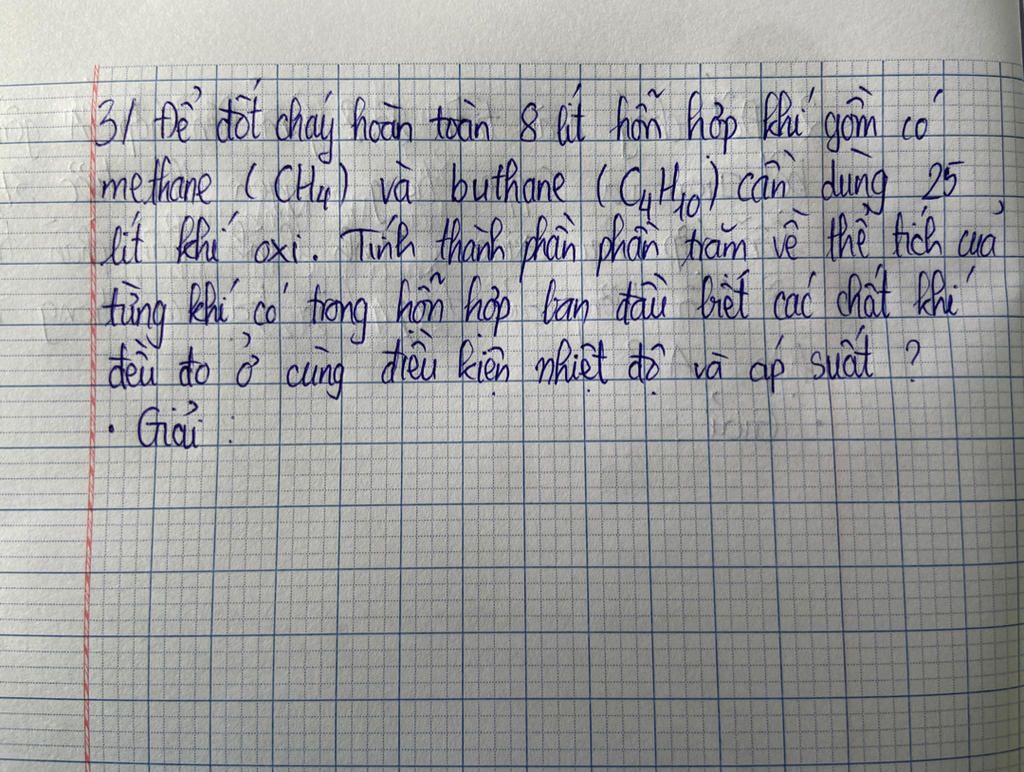 3/ Để đốt cháy hoàn toàn 8 lít hỗn hợp khí gồm có
methane (CH4) và buthane (C4H10) cần dùng 25
lít khí oxi. Tính thành phần phần trăm về thể tích của
từng khí có trong hỗn hợp ban đầu biết các chất khí
đều đo ở cùng điều kiện nhiệt độ và áp suất ?
· Giải :